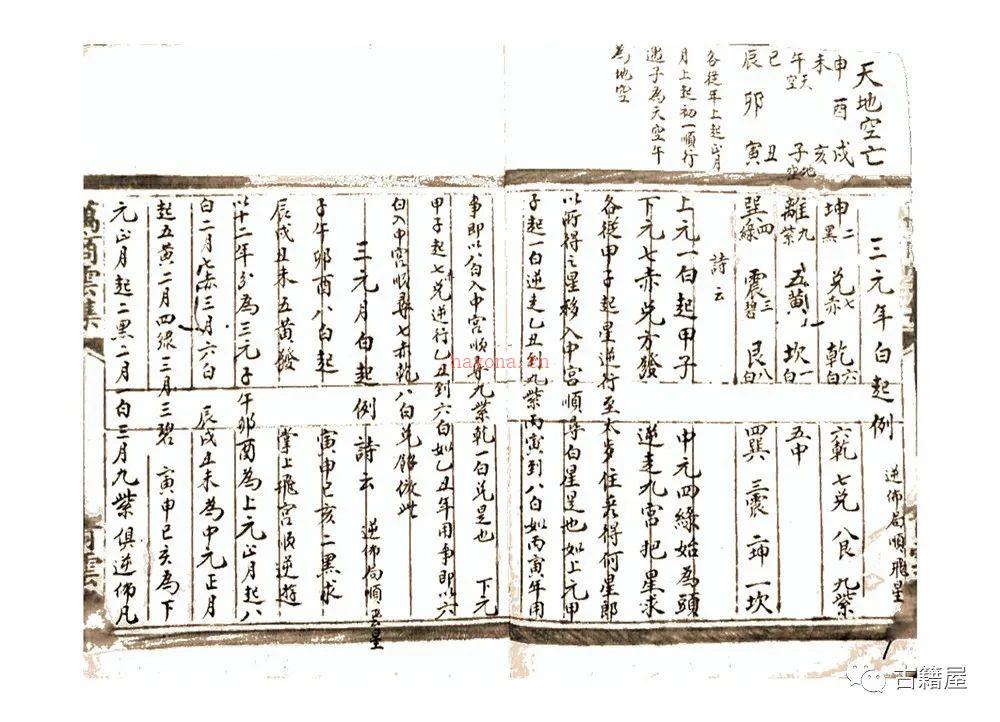 天地空亡
申酉戌
未 亥
午 天空 子 地空
巳 丑
辰卯寅
各從年上起正月
月上起初一順行
遇子為天空午
為地空
三元年白起例 逆佈局順飛星
坤二黑 兌七赤 乾六白 六乾七兌八艮九紫
離九紫 五黃 坎一白 五中
巽四綠 震三碧 艮八白 四巽三震二坤一坎
詩云
上元一白起甲子 中元四綠始為頭
下元七赤兌方發 逆走九宮把星求
各從甲子起星逆行至太歲住看得何星郎
以所得之星移入中宮順尋白星是地如上元甲
子起一白逆走乙丑到九紫丙寅到八白如丙寅年用
事即以八白入中宮順尋九紫乾一白兌是也 下元
甲子起七兌逆行乙丑到六白如乙丑年用事即以六
白入中宮順尋七赤乾八白兌餘倣此
三元月白起例詩云 逆佈局順飛星
子午卯酉八白起 寅申巳亥二黑求
辰戌丑未五黃發 掌上飛宮順逆遊
以十二年分為三元子午卯酉為上元正月起八
白二月七赤三月六白 辰戌丑未為中元正月
起五黃二月四綠三月三碧 寅申巳亥為下
元正月起二黑二月一白三月九紫俱逆佈凡
萬商雲集
商雲
haxona.cn
古籍屋